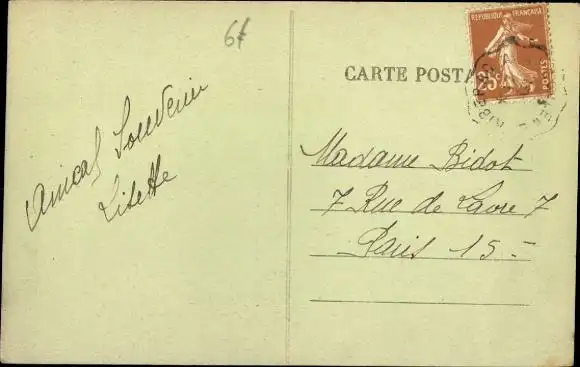 6f
Amical Souvenir
Lisette
CARTE POSTA
REPUBLIQUE FRANÇAISE
25c
POSTES
Madame Bidot
7 Rue de Lavre 7
Paris 15 -